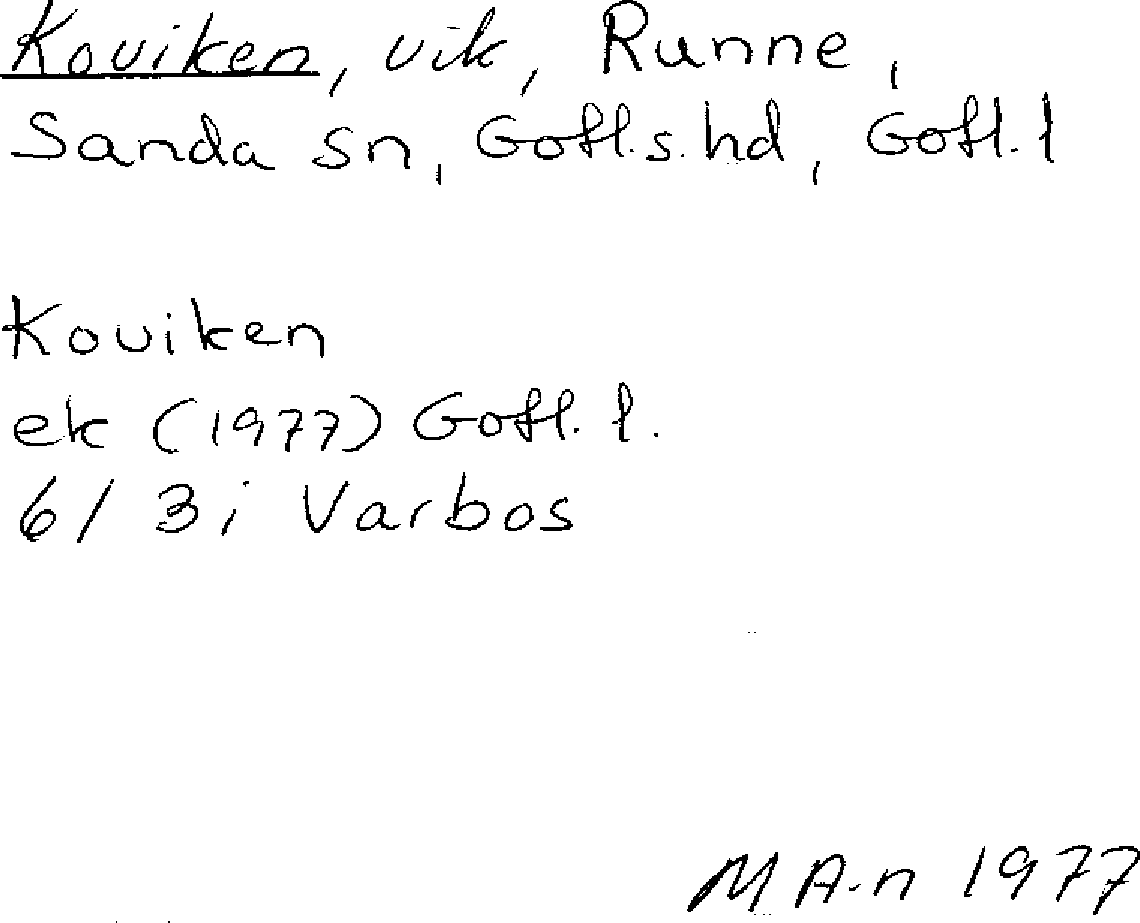 Koviken, vik, Runne,
Sanda sn, Gotl.s.hd, Gotl.l
Koviken
ek (1977) Gotl. l.
6/ 3i Varbos
M A-n 1977